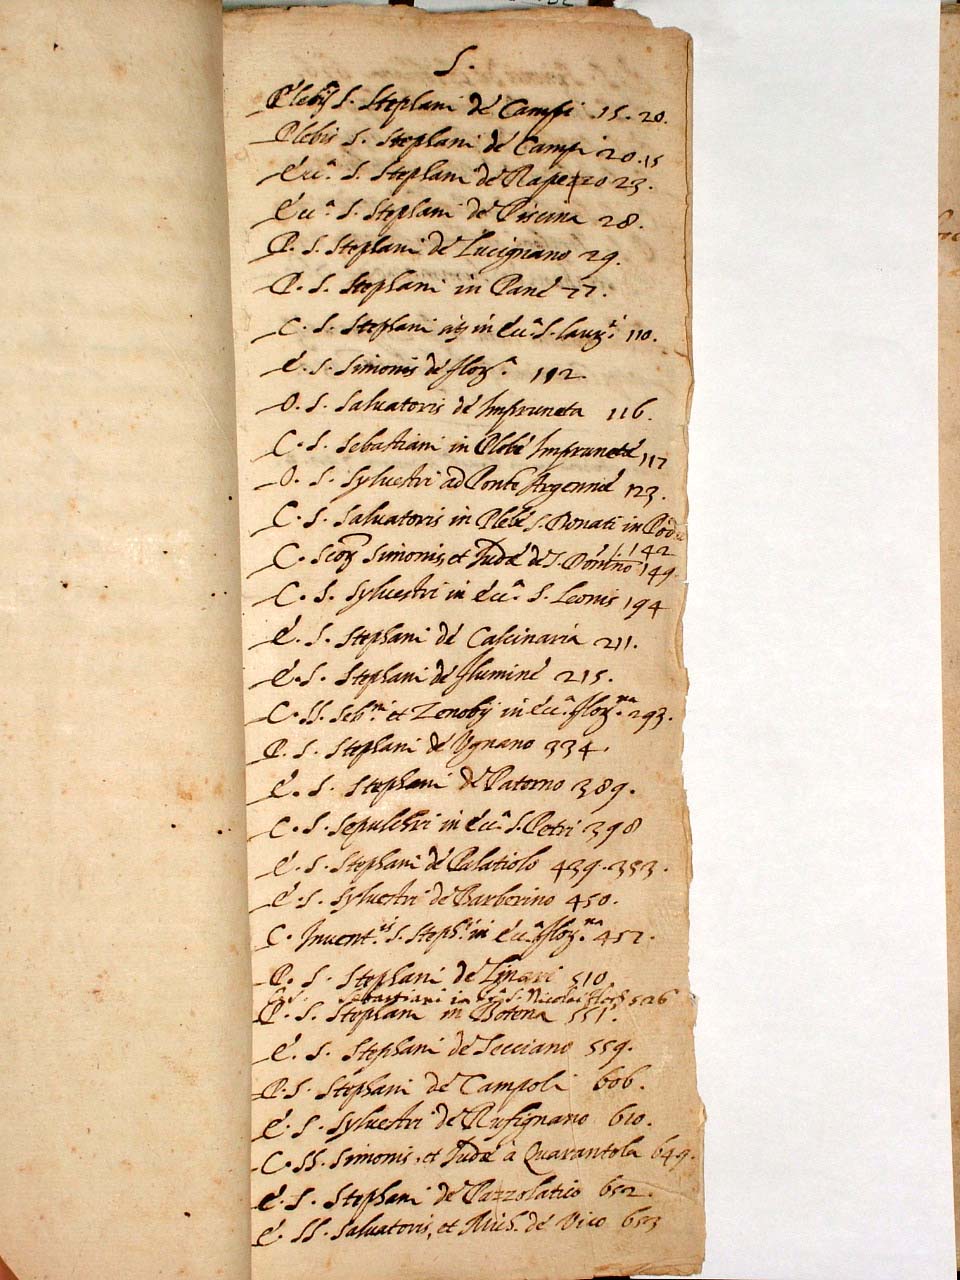 S.
Plebis S. Stephani de Campi 15. 20.
Plebis S. Stephani de Campi 20. 15
Ecc.ᵃ S. Stephani de Rapezzo 23.
Ecc.ᵃ S. Stephani de Piscina 28.
P. S. Stephani de Lucignano 29.
P. S. Stephani in Pane 77.
C. S. Stephani in Ecc.ᵃ S. Laur. 110.
E. S. Simonis de flor.ᵃ 112.
O. S. Saluatoris de Impruneta 116.
C. S. Sebastiani in Plebe Imprunete 117
O. S. Syluestri ad Ponte 123.
C. S. Saluatoris in Plebe S. Donati in
142
C. Simonis, et Iudæ de S. 149.
C. S. Syluestri in Ecc.ᵃ S. Leonis 194
E. S. Stephani de Calcinaria 211.
E. S. Stephani de flumine 215.
C. SS. Seb.ⁿⁱ et Zenobij in Ecc.ᵃ flor.ⁿᵃ 293.
P. S. Stephani de Vgnano 334.
E. S. Stephani de Paterno 389.
C. S. Sepulchri in Ecc.ᵃ S. Petri 398
E. S. Stephani de Palatiolo 439. 353.
E. S. Syluestri de Barberino 450.
C. Inuent.ⁱˢ S. Steph.ⁱ in Ecc.ᵃ flor.ⁿᵃ 452.
P. S. Stephani de Linari 510
S. Sebastiani in S. Nicolai flor. 526
P. S. Stephani in Botena 551.
E. S. Stephani de Secciano 559.
P. S. Stephani de Campoli 606.
E. S. Syluestri de Rufignano 610.
C. SS. Simonis, et Iudæ a Quarantola 649.
E. S. Stephani de Pazzolatico 652.
E. SS. Saluatoris, et Mich. de Vico 653